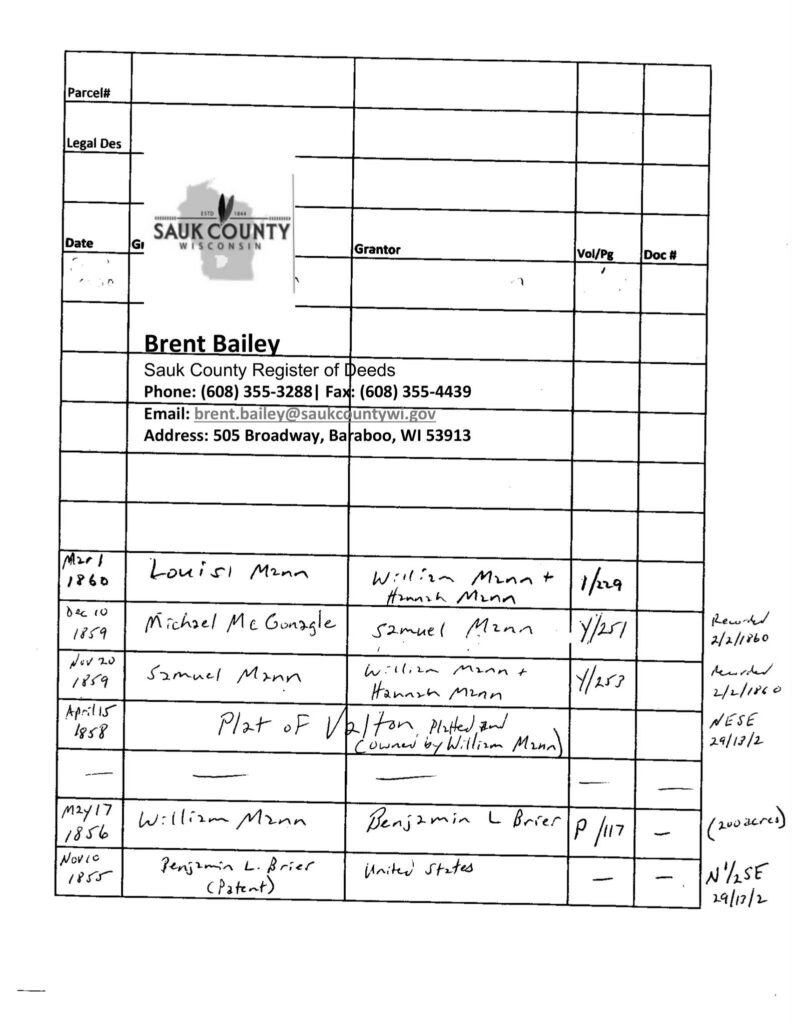 Parcel#
Legal Des
ESTD 1844
SAUK COUNTY
WISCONSIN
Date Gr Grantor Vol/Pg Doc #
Brent Bailey
Sauk County Register of Deeds
Phone: (608) 355-3288| Fax: (608) 355-4439
Email: brent.bailey@saukcountywi.gov
Address: 505 Broadway, Baraboo, WI 53913
Mar 1
1860
Louisi Mann
William Mann +
Hannah Mann
1/229
Dec 10
1859
Michael McGonagle
Samuel Mann
Y/251
Recorded
2/2/1860
Nov 20
1859
Samuel Mann
William Mann +
Hannah Mann
Y/253
Recorded
2/2/1860
April 15
1858
Plat of Valton, Platted and
(owned by William Mann)
NESE
29/13/2
— — — — —
May 17
1856
William Mann
Benjamin L Brier
P/117
—
(200 acres)
Nov 10
1855
Benjamin L. Brier
(Patent)
United States
—
—
N1/2SE
29/13/2